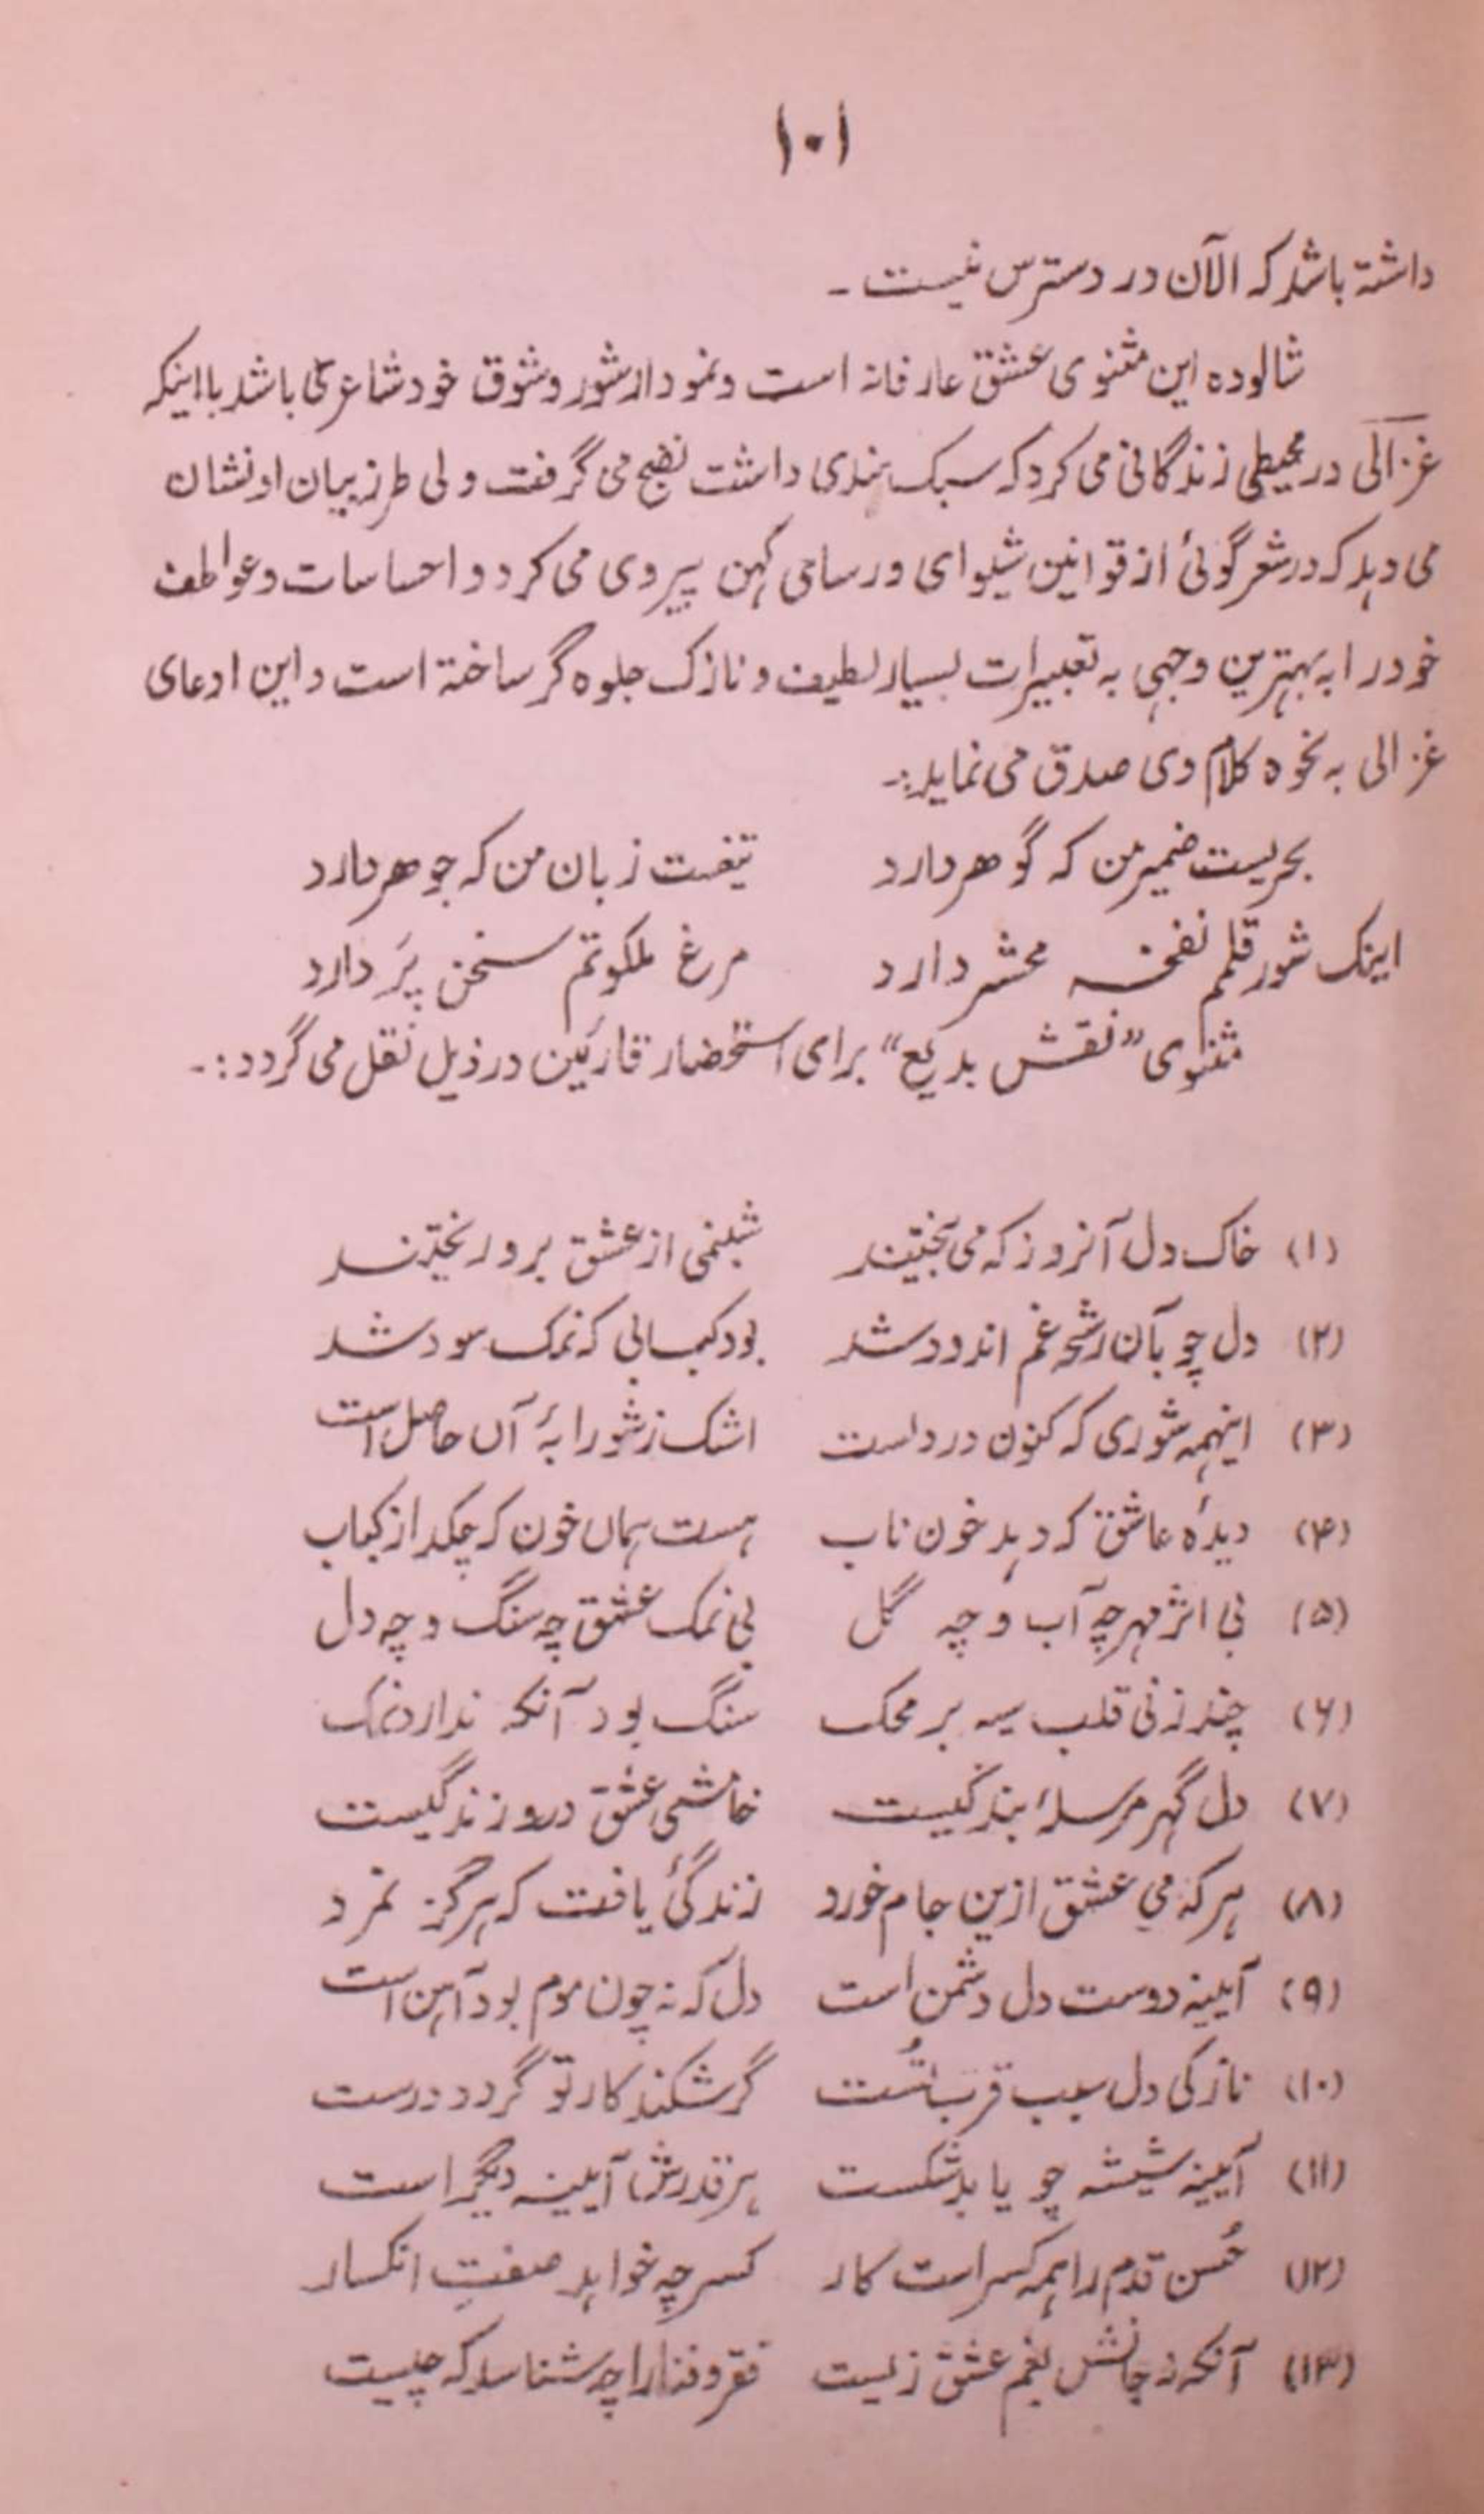 ۱۰۱
داشته باشد که الآن در دسترس نیست ـ
شالوده این مثنوی عشق عارفانه است و نمودار شور و شوق خود شاعر می باشد با اینکه
غزالی در محیطی زندگانی می کرد که سبک هندی داشت نضج می گرفت ولی طرز بیان او نشان
می دهد که در شعر گوئی از قوانین شیوای و رسای کهن پیروی می کرد و احساسات و عواطف
خود را به بهترین وجهی به تعبیرات بسیار لطیف و نازک جلوه گر ساخته است و این ادعای
غزالی به نحوه کلام وی صدق می نماید:ـ
بحریست ضمیر من که گوهر دارد تیغست زبان من که جوهر دارد
اینک شور قلمم نفخه محشر دارد مرغ ملکوتم سخن پَر دارد
مثنوی "نقش بدیع" برای استحضار قارئین در ذیل نقل می گردد:ـ
(۱) خاک دل آنروز که می بیختند شبنمی از عشق برو ریختند
(۲) دل چو بآن رشحه غم اندود شد بود کبابی که نمک سود شد
(۳) اینهمه شوری که کنون در دلست اشک ز شورابهٔ آں حاصل است
(۴) دیدهٔ عاشق که دهد خون ناب هست هماں خون که چکد از کباب
(۵) بی اثر مهر چه آب و چه گل بی نمک عشق چه سنگ و چه دل
(۶) چند زنی قلب سیه بر محک سنگ بود آنکه ندارد نمک
(۷) دل گهر مرسلهٔ بندگیست خاشمی عشق درو زندگیست
(۸) هر که میِ عشق ازین جام خورد زندگیٔ یافت که هرگز نمرد
(۹) آیینه دوست دل دشمن است دل که نه چون موم بود آهن است
(۱۰) نازکی دل سبب قرب تُست گر شکند کار تو گردد درست
(۱۱) آیینه شیشه چو یابد شکست هر قدرش آیینه دیگر است
(۱۲) حُسن قدم را همه کسر است کار کسر چه خواهد صفتِ انکسار
(۱۳) آنکه نه جانش بغم عشق زیست فقر و فنا را چه شناسد که چیست